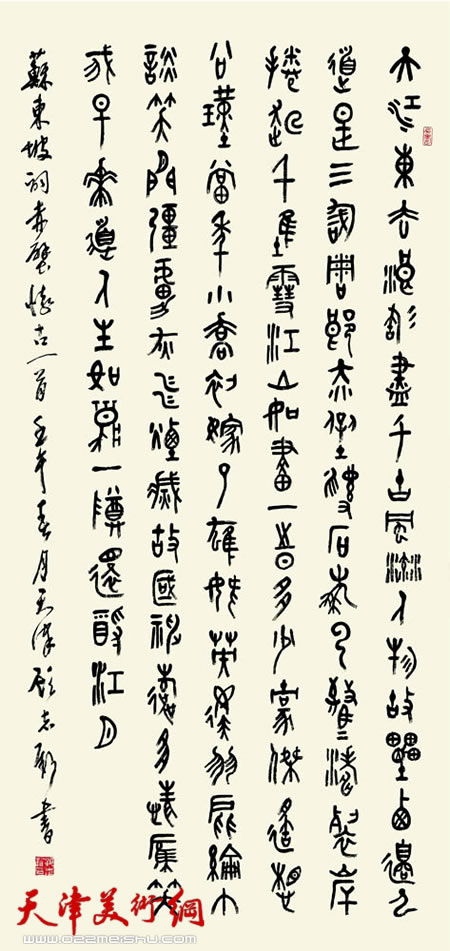 大江東去浪淘盡千古風流人物故壘西邊人
道是三國周郎赤壁亂石崩雲驚濤裂岸
捲起千堆雪江山如畫一時多少豪傑遙想
公瑾當年小喬初嫁了雄姿英發羽扇綸巾
談笑間強虜灰飛煙滅故國神遊多情應笑
我早華髮人生如夢一樽還酹江月
蘇東坡詞赤壁懷古一首壬午春月天津顧志新書
天津美術網
www.022meishu.com